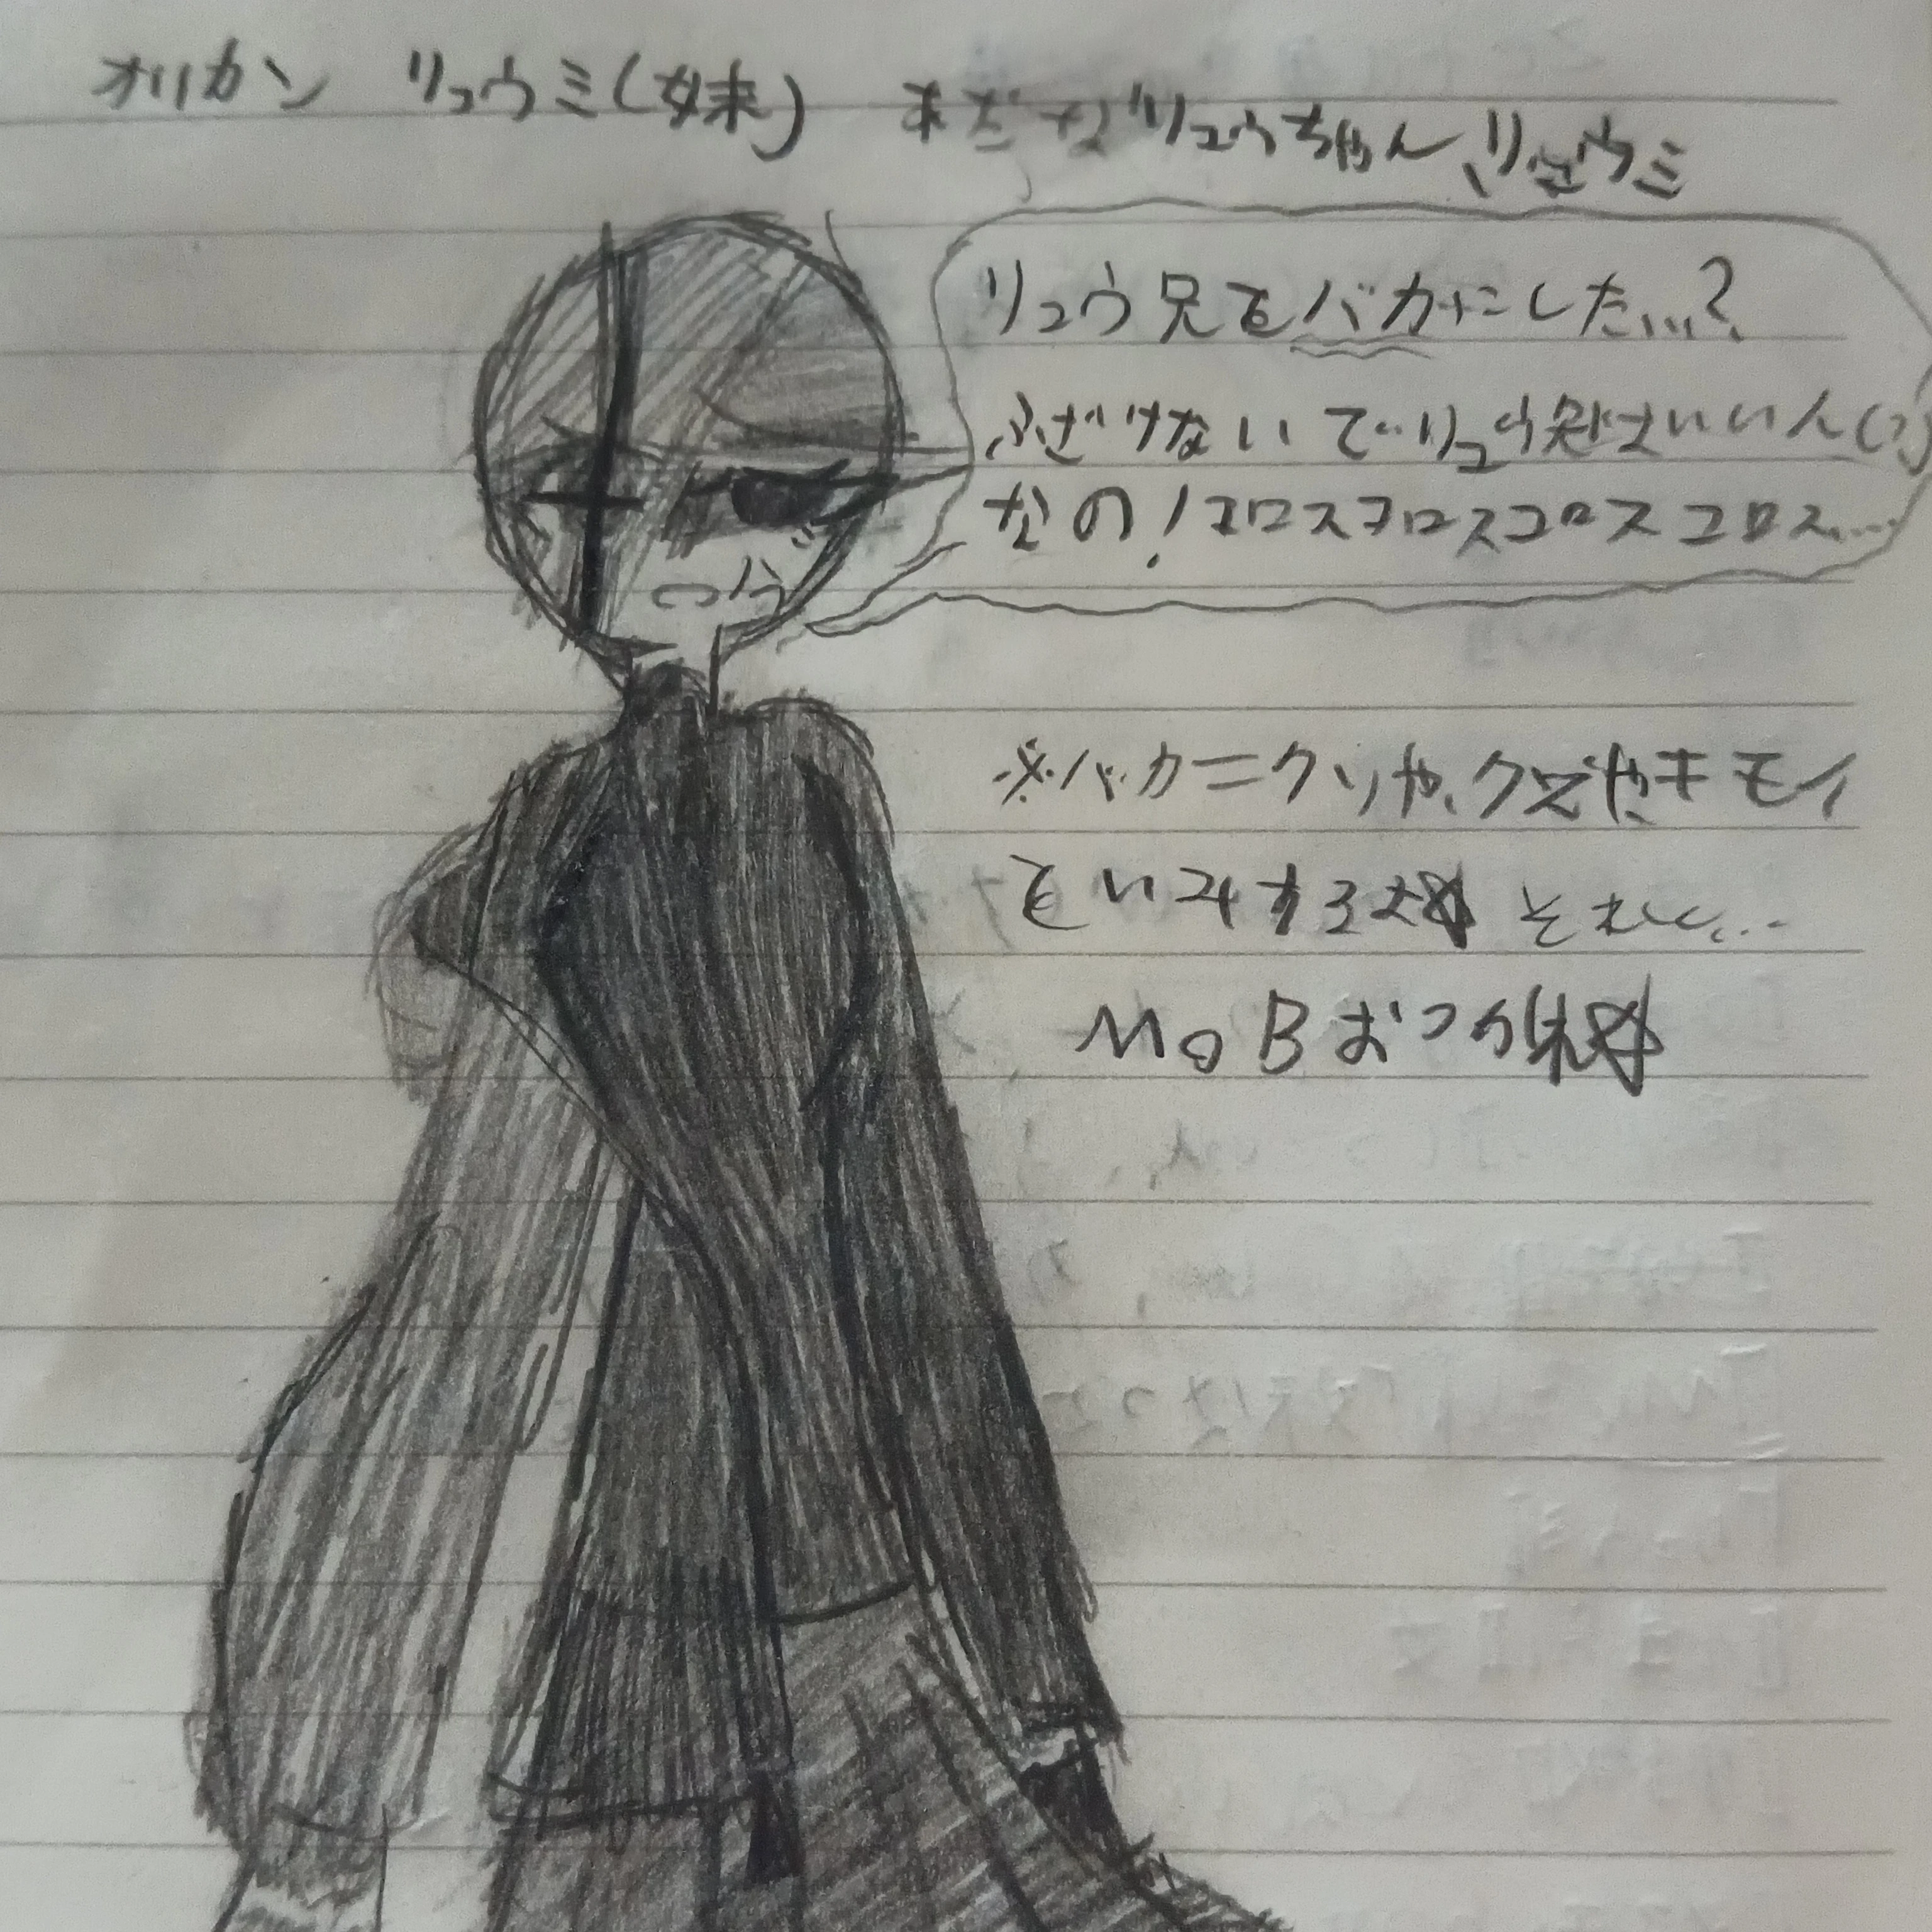 オリカン リュウミ(妹) あだな リュウちゃん、リュウミ
リュウ兄をバカにした…?
ふざけないで…リュウ兄はいい人(?)
なの!コロスコロスコロスコロス…
※バカ=クソや、クズやキモイ
をいみするよ☆ それと…
MOBおつかれ☆